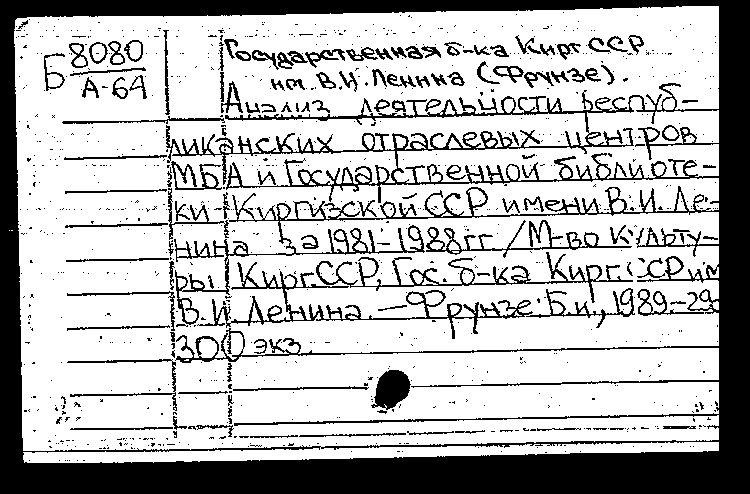 Б 8080
А-64
Государственная б-ка Кирг.ССР
им. В.И. Ленина (Фрунзе).
Анализ деятельности респуб-
ликанских отраслевых центров
МБА и Государственной библиоте-
ки Киргизской ССР имени В.И. Ле-
нина за 1981-1988гг. /М-во культу-
ры Кирг.ССР, Гос. б-ка Кирг.ССР им
В.И. Ленина. — Фрунзе: Б.и., 1989.-29с
300 экз.